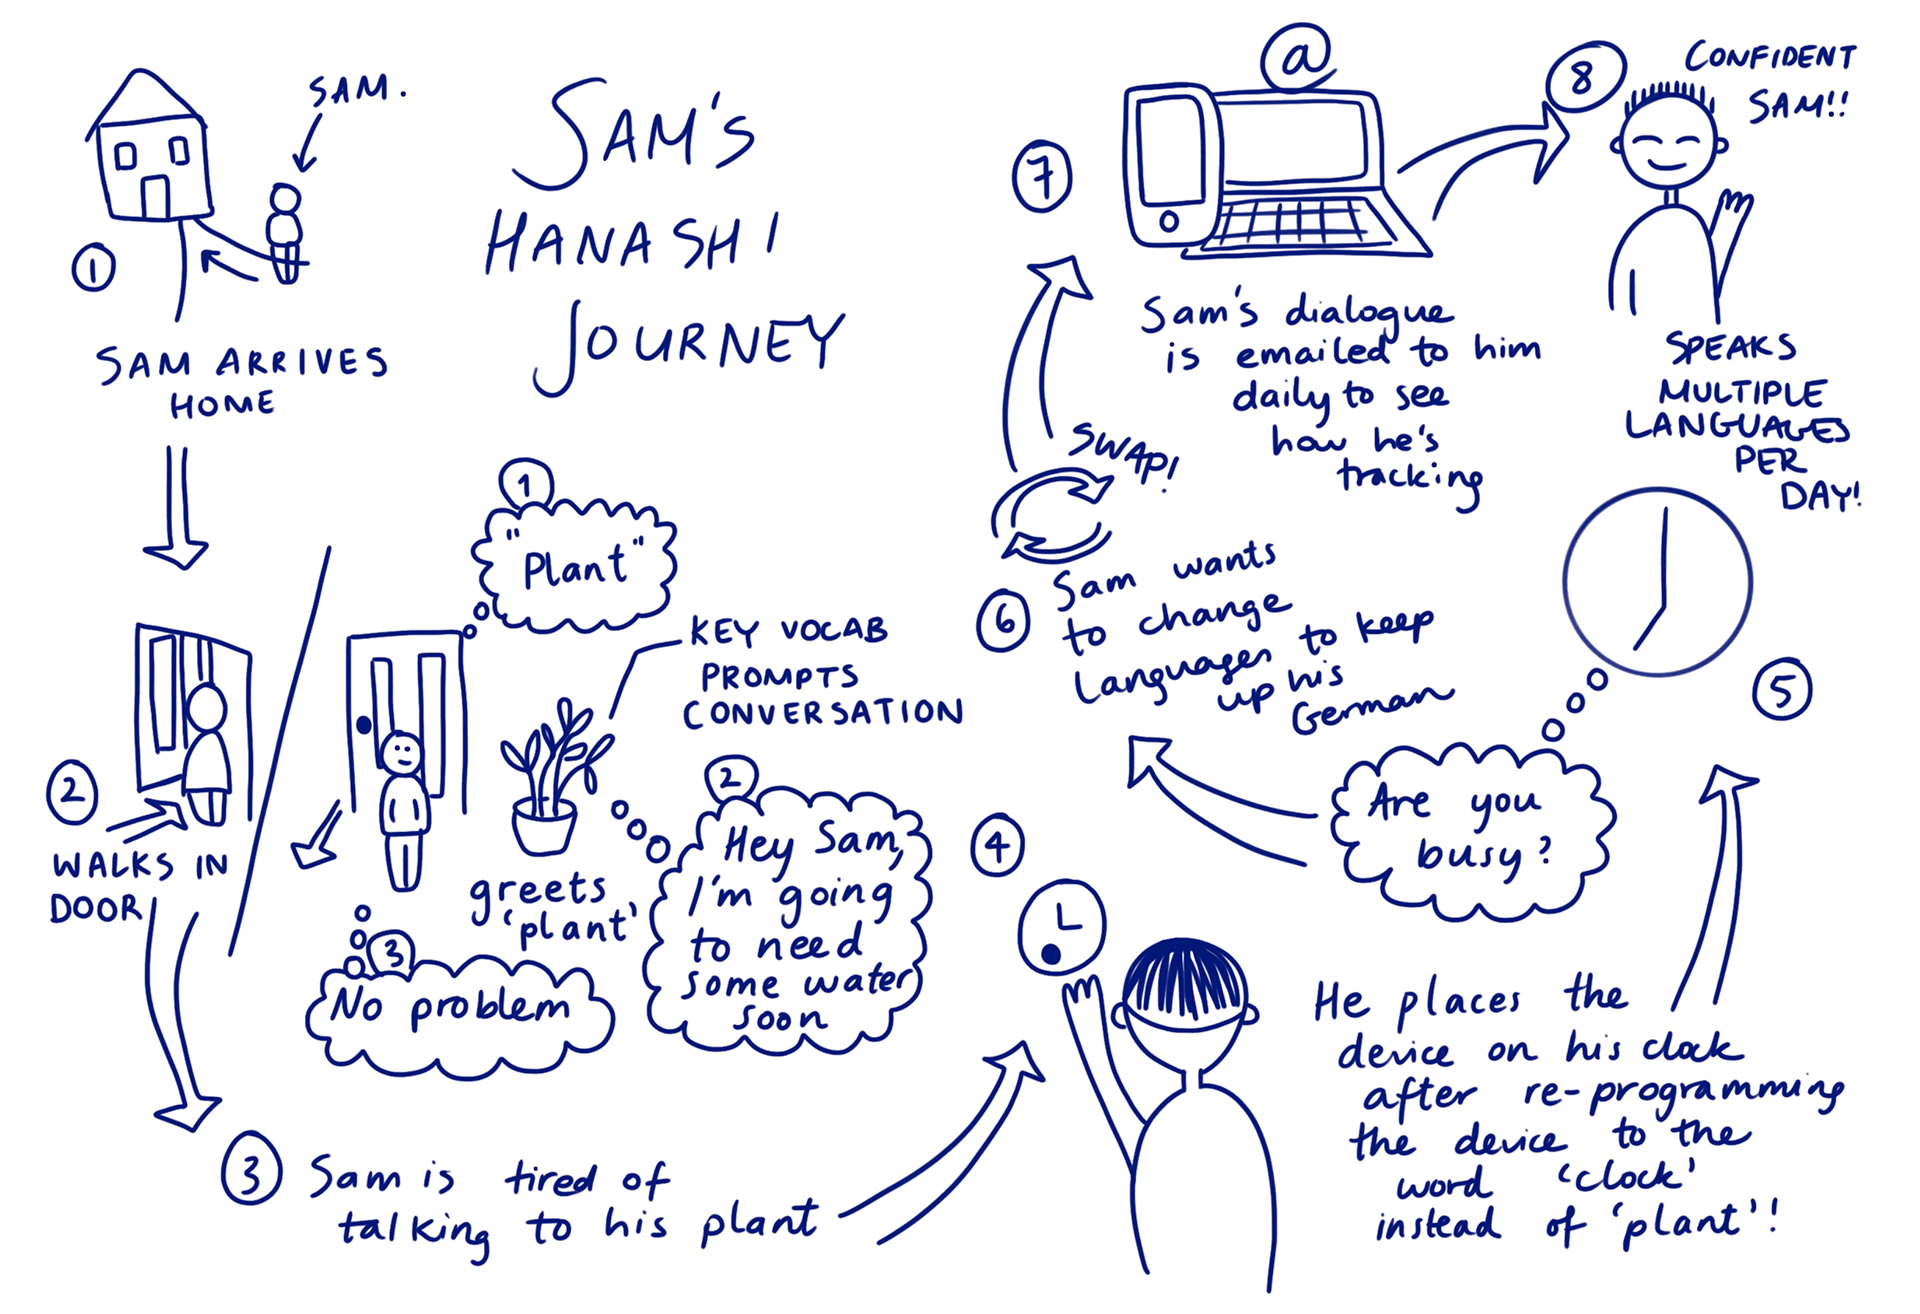 SAM'S
HANASHI
JOURNEY
SAM.
1
SAM ARRIVES
HOME
2
WALKS IN
DOOR
1
"Plant"
KEY VOCAB
PROMPTS
CONVERSATION
greets
'plant'
2
Hey Sam,
I'm going
to need
some water
soon
3
No problem
3
Sam is tired of
talking to his plant
4
He places the
device on his clock
after re-programming
the device to the
word 'clock'
instead of 'plant'!
5
Are you
busy?
6
Sam wants
to change
languages to keep
up his
German
SWAP!
7
@
Sam's dialogue
is emailed to him
daily to see
how he's
tracking
8
CONFIDENT
SAM!!
SPEAKS
MULTIPLE
LANGUAGES
PER
DAY!